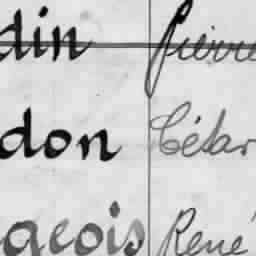 din Pierre
don César
geois René